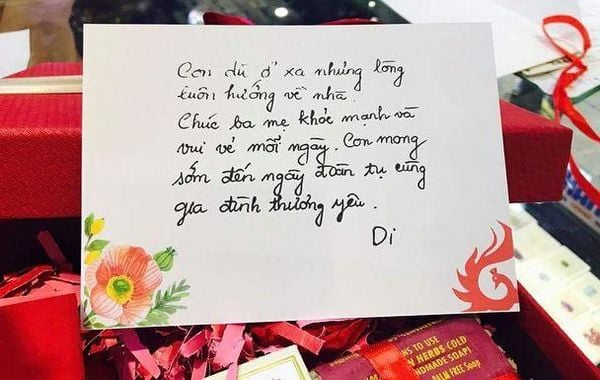 Con dù ở xa nhưng lòng
luôn hướng về nhà.
Chúc ba mẹ khỏe mạnh và
vui vẻ mỗi ngày. Con mong
sớm đến ngày đoàn tụ cùng
gia đình thương yêu.
Di
NS TO USE
HERBS COLD
NDMADE SOAP!
PALM FREE Soap